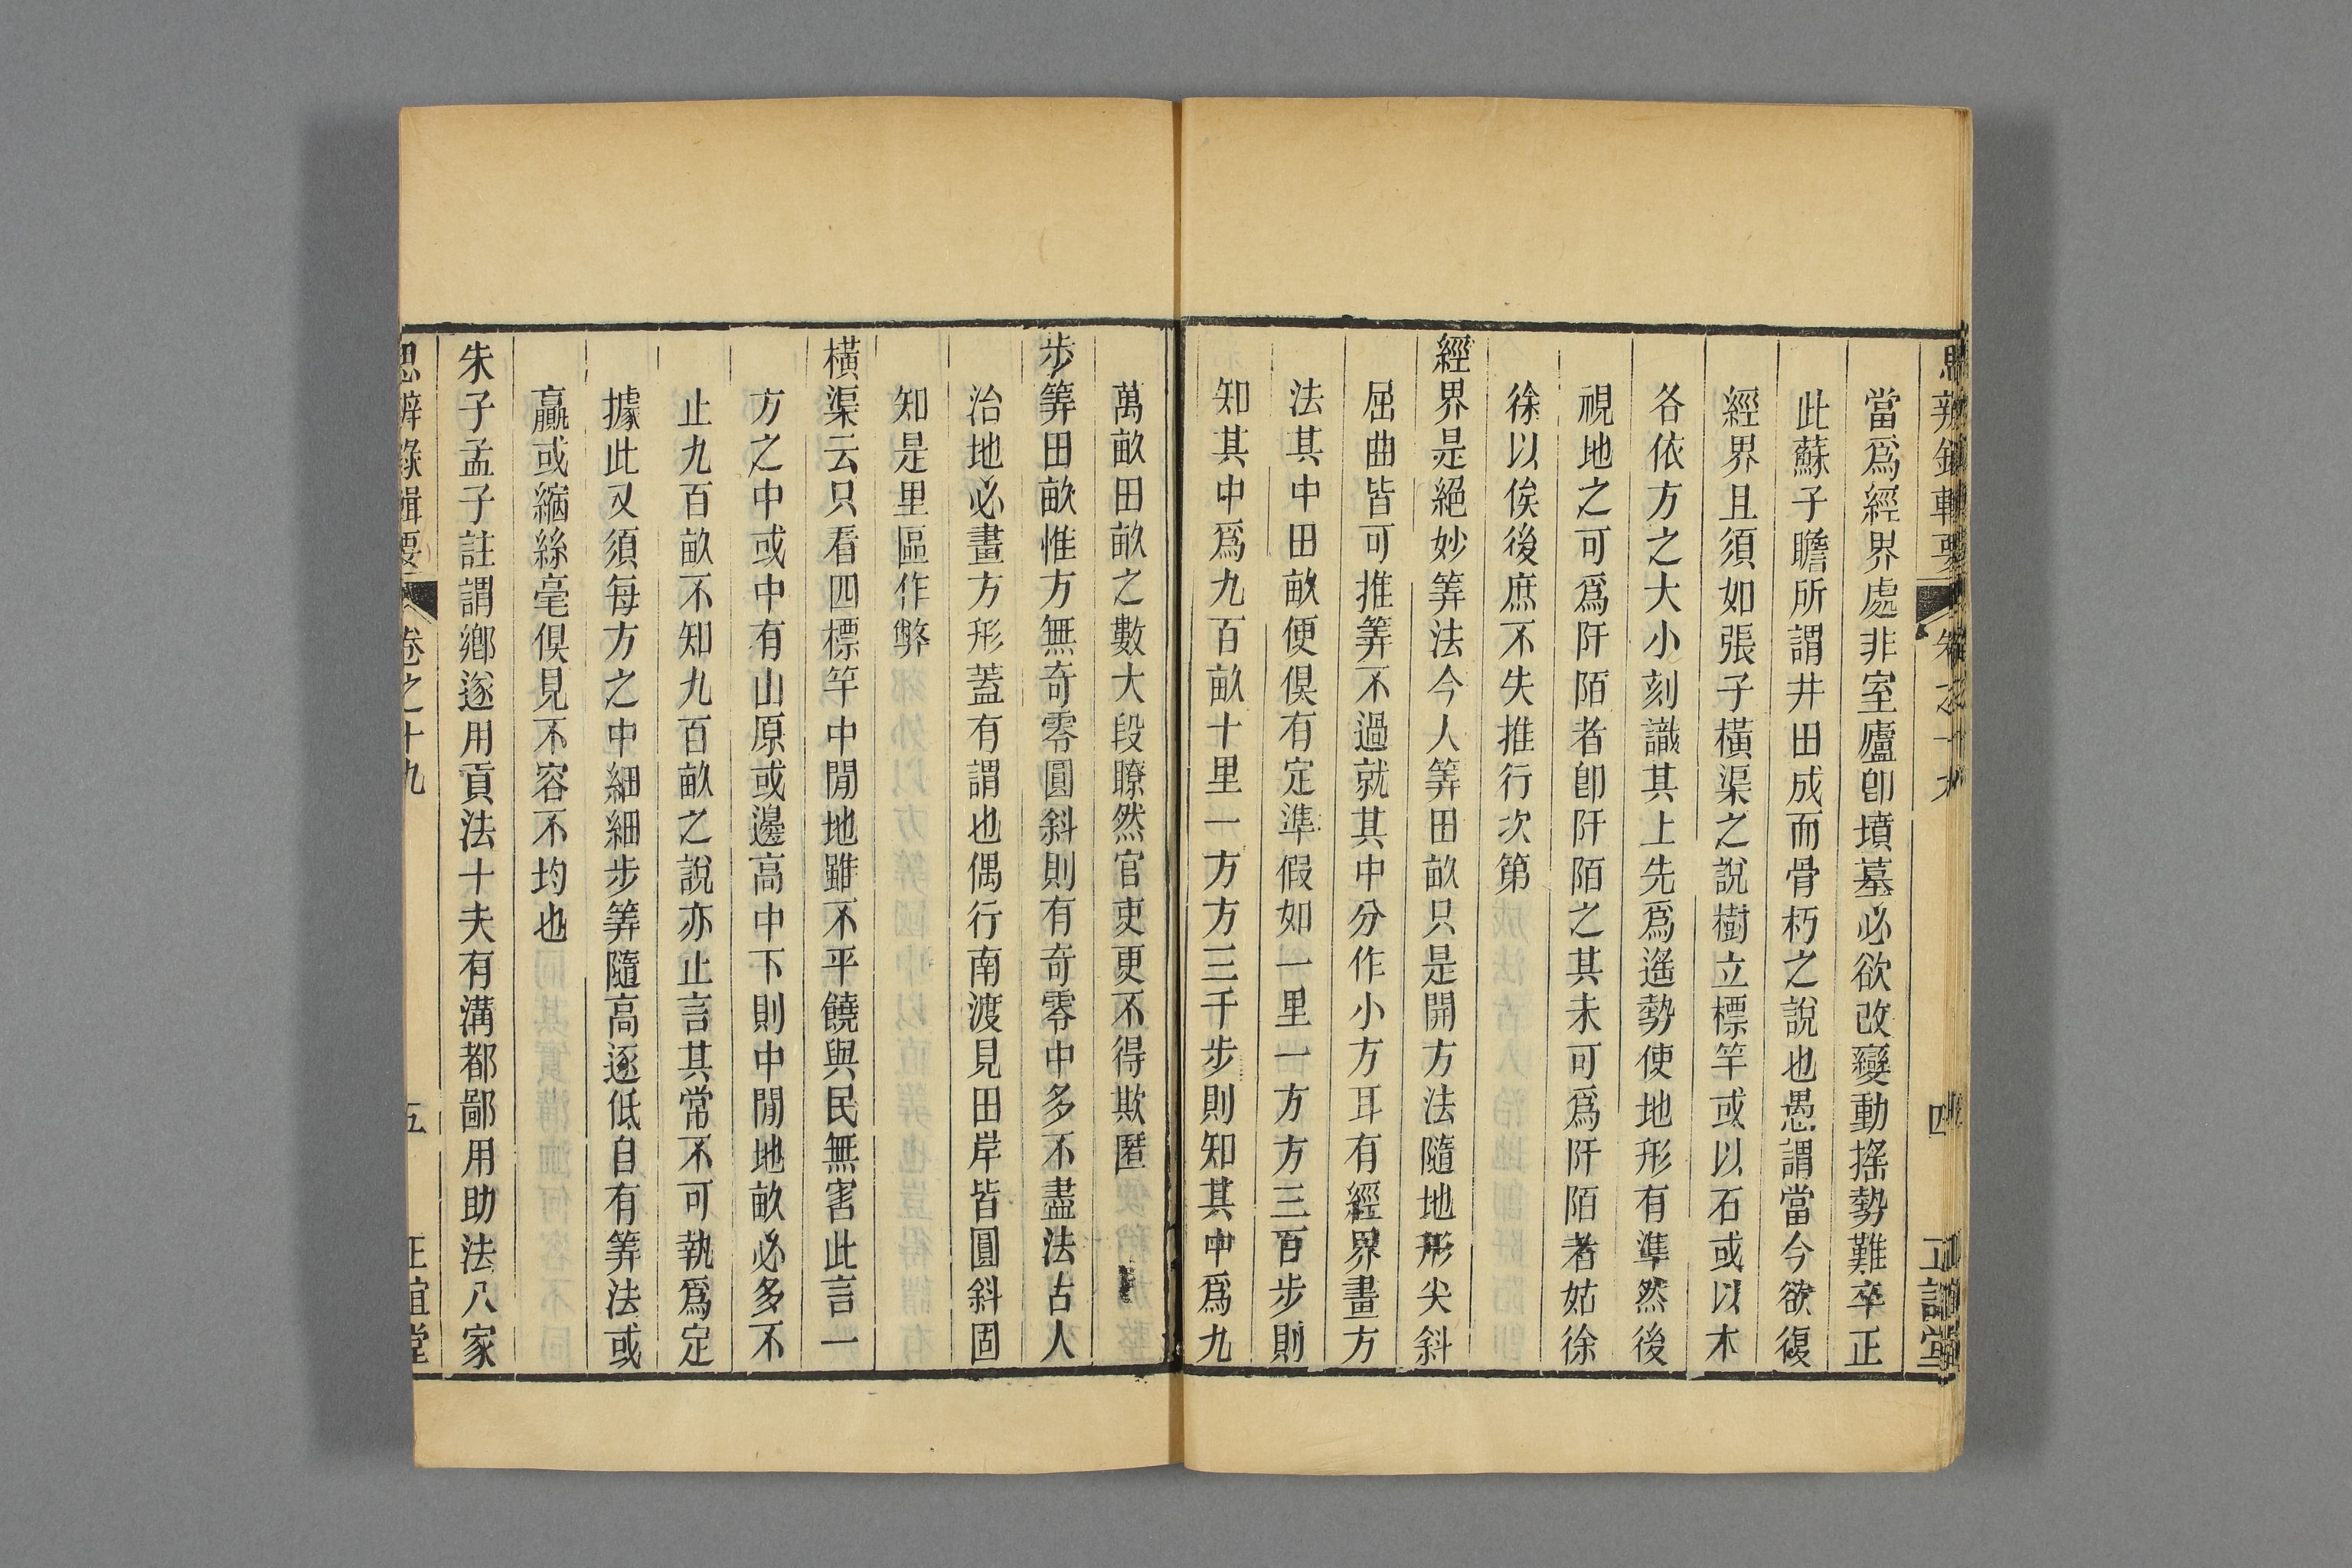 思辨錄輯要 卷之十九 四 正誼堂
當爲經界處非室廬卽墳墓必欲改變動搖勢難卒正
此蘇子瞻所謂井田成而骨朽之說也愚謂當今欲復
經界且須如張子橫渠之說樹立標竿或以石或以木
各依方之大小刻識其上先爲遙勢使地形有準然後
視地之可爲阡陌者卽阡陌之其未可爲阡陌者姑徐
徐以俟後庶不失推行次第
經界是絕妙筭法今人筭田畝只是開方法隨地形尖斜
屈曲皆可推筭不過就其中分作小方耳有經界畫方
法其中田畝便俱有定準假如一里一方方三百步則
知其中爲九百畝十里一方方三千步則知其中爲九
萬畝田畝之數大段瞭然官吏更不得欺匿
步筭田畝惟方無奇零圓斜則有奇零中多不盡法古人
治地必畫方形蓋有謂也偶行南渡見田岸皆圓斜固
知是里區作弊
橫渠云只看四標竿中閒地雖不平饒與民無害此言一
方之中或中有山原或邊高中下則中閒地畝必多不
止九百畝不知九百畝之說亦止言其常不可執爲定
據此又須每方之中細細步筭隨高逐低自有筭法或
贏或縮絲毫俱見不容不均也
朱子孟子註謂鄉遂用貢法十夫有溝都鄙用助法八家
思辨錄輯要 卷之十九 五 正誼堂